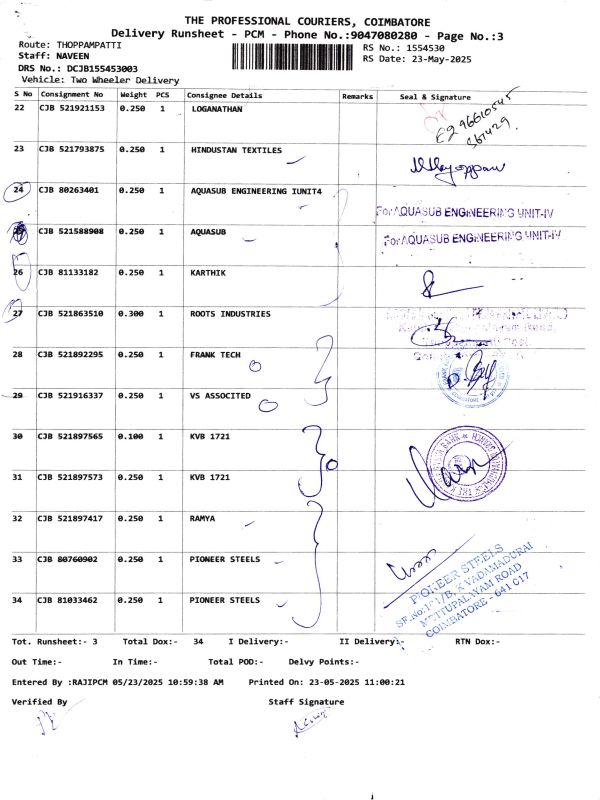 THE PROFESSIONAL COURIERS, COIMBATORE
Delivery Runsheet - PCM - Phone No.:9047080280 - Page No.:3
Route: THOPPAMPATTI
Staff: NAVEEN
DRS No.: DCJB155453003
Vehicle: Two Wheeler Delivery
RS No.: 1554530
RS Date: 23-May-2025
S No Consignment No Weight PCS Consignee Details Remarks Seal & Signature
22 CJB 521921153 0.250 1 LOGANATHAN
23 CJB 521793875 0.250 1 HINDUSTAN TEXTILES
24 CJB 80263401 0.250 1 AQUASUB ENGINEERING IUNIT4 For AQUASUB ENGINEERING UNIT-IV
CJB 521588908 0.250 1 AQUASUB For AQUASUB ENGINEERING UNIT-IV
26 CJB 81133182 0.250 1 KARTHIK
27 CJB 521863510 0.300 1 ROOTS INDUSTRIES
28 CJB 521892295 0.250 1 FRANK TECH
29 CJB 521916337 0.250 1 VS ASSOCITED
30 CJB 521897565 0.100 1 KVB 1721
31 CJB 521897573 0.250 1 KVB 1721
32 CJB 521897417 0.250 1 RAMYA
33 CJB 80760902 0.250 1 PIONEER STEELS
34 CJB 81033462 0.250 1 PIONEER STEELS
PIONEER STEELS
VADAMADURAI
METTUPALAYAM ROAD
COIMBATORE - 641 017
Tot. Runsheet:- 3 Total Dox:- 34 I Delivery:- II Delivery:- RTN Dox:-
Out Time:- In Time:- Total POD:- Delvy Points:-
Entered By :RAJIPCM 05/23/2025 10:59:38 AM Printed On: 23-05-2025 11:00:21
Verified By Staff Signature